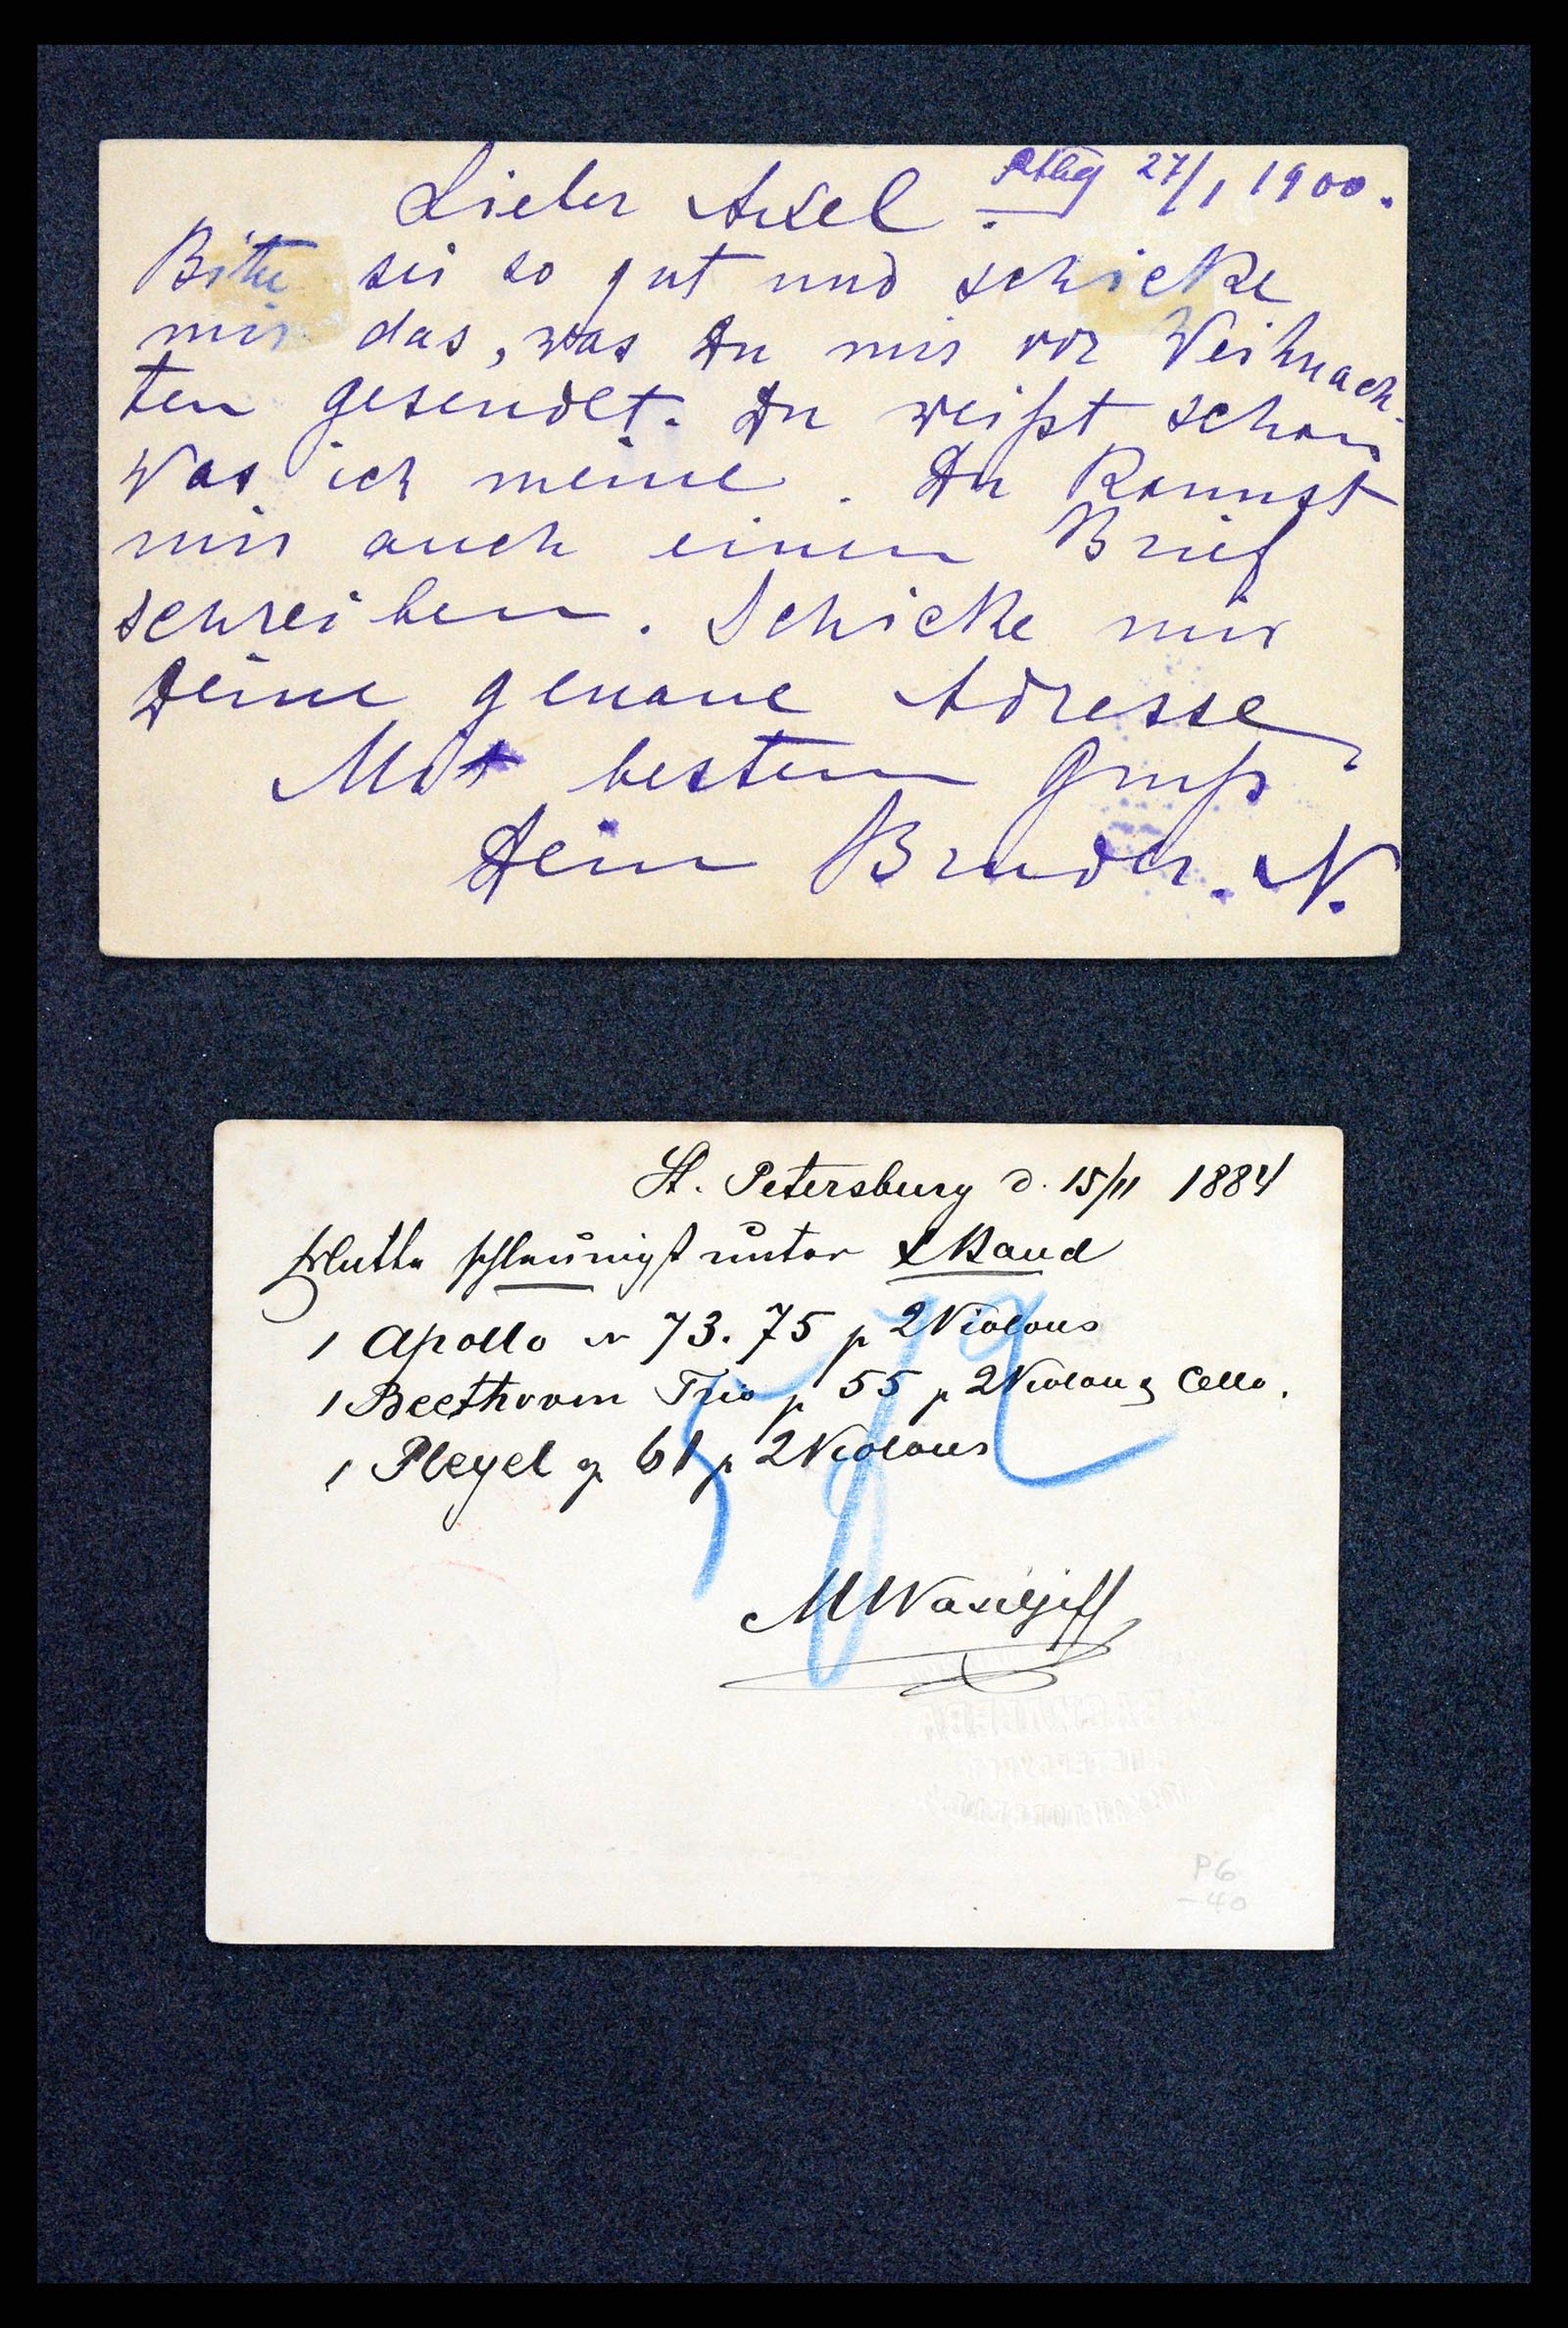 Ptbg 27/1 1900.
Lieber Axel.
Bitte sei so gut und schicke
mir das, was Du mir vor Weihnach-
ten gesendet. Du weißt schon
Was ich meine. Du Kannst
mir auch einen Brief
schreiben. Schicke mir
Deine genaue Adresse
Mit bestem Gruß
Dein Bruder. N.
St. Petersburg d. 15/11 1884
Bitte schleunigst unter x Band
1 Apollo N 73. 75 p 2 Violons
1 Beethoven Trio p 55 p 2 Violon & Cello.
1 Pleyel op 61 p 2 Violons
M Wasiljeff
P6
-40